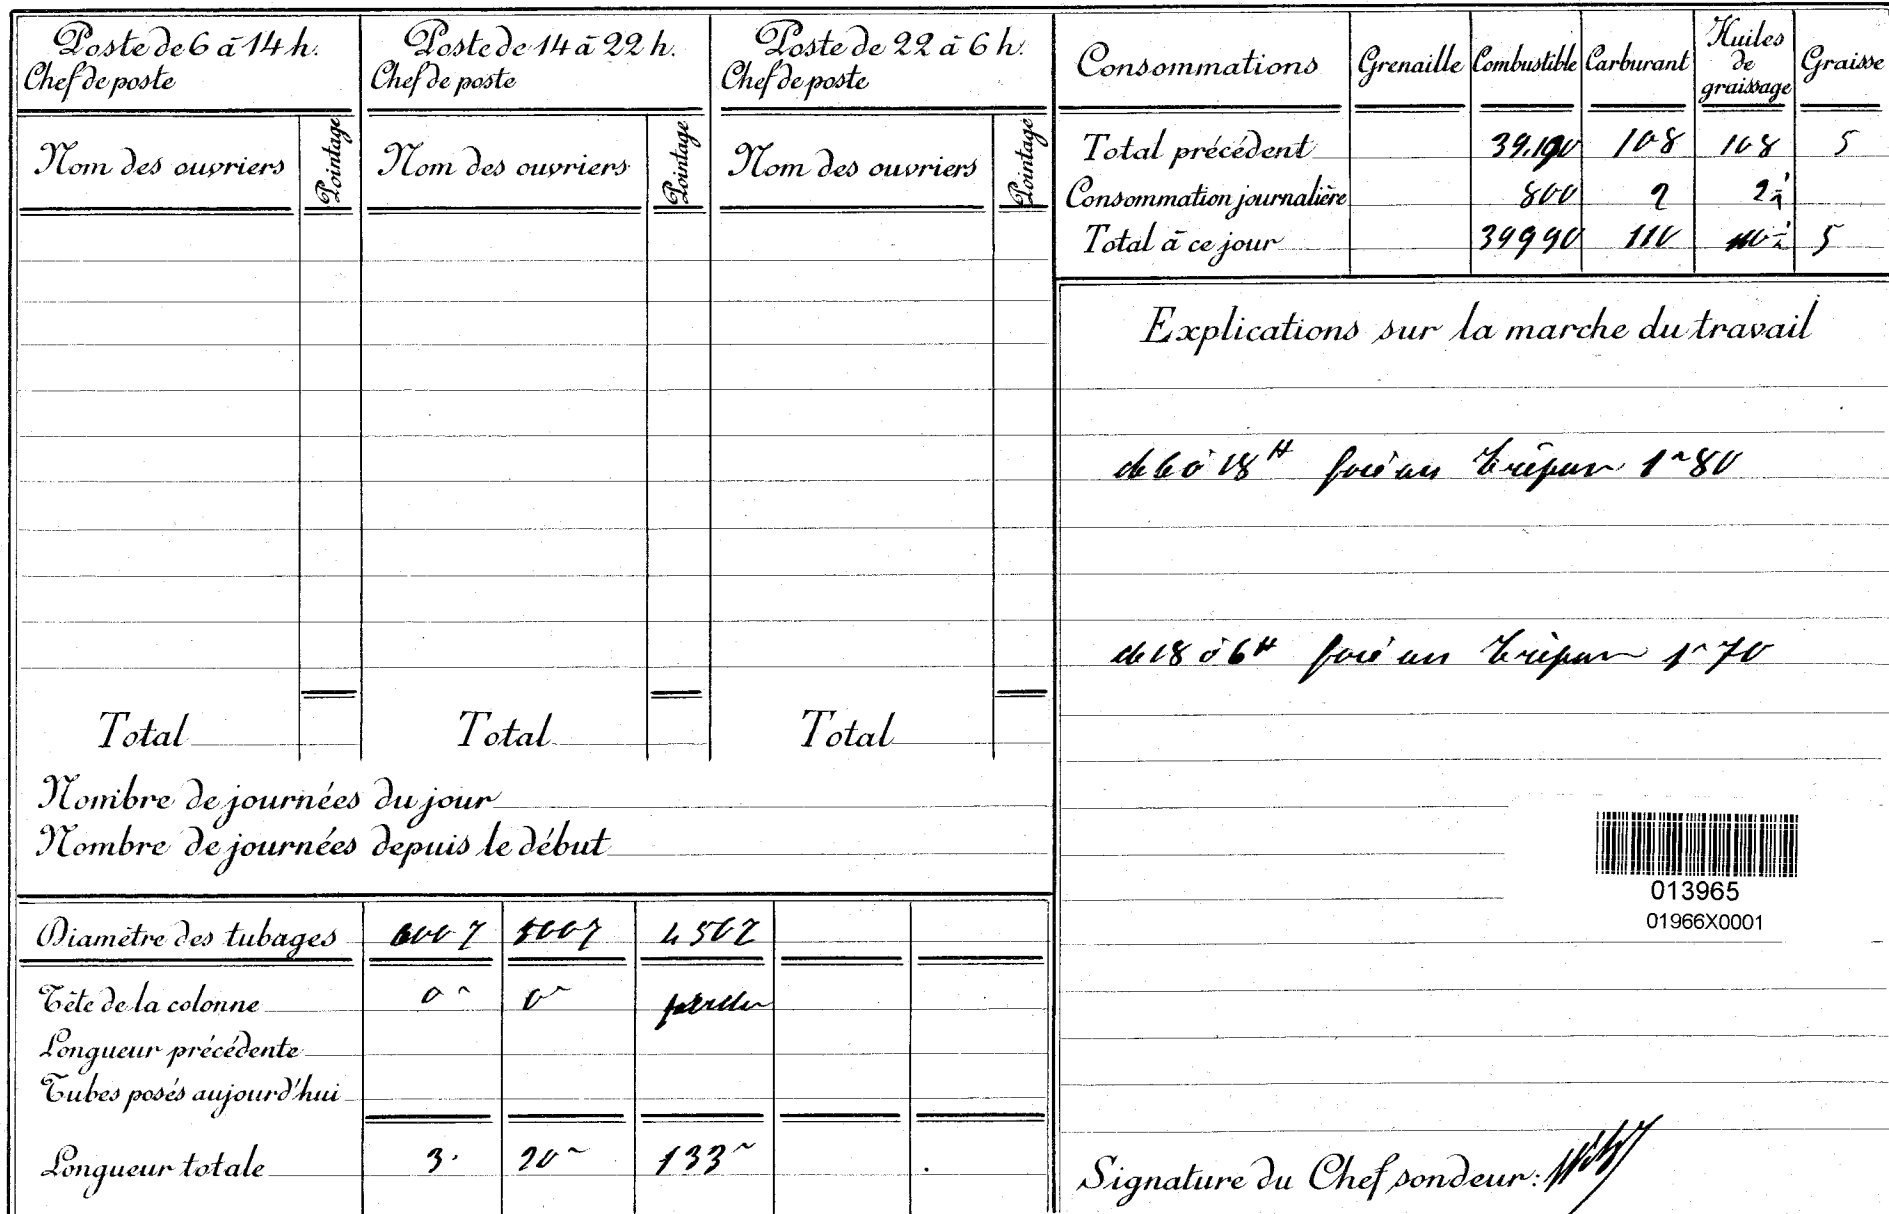 Poste de 6 à 14 h. Poste de 14 à 22 h. Poste de 22 à 6 h.
Chef de poste Chef de poste Chef de poste
Nom des ouvriers Pointage Nom des ouvriers Pointage Nom des ouvriers Pointage
Total Total Total
Nombre de journées du jour
Nombre de journées depuis le début
Diamètre des tubages
Tête de la colonne 0m 0m
Longueur précédente
Tubes posés aujourd'hui
Longueur totale 3. 20m 133m
Consommations Grenaille Combustible Carburant Huiles de graissage Graisse
Total précédent 39.190 108 108 5
Consommation journalière 800 2 2½
Total à ce jour 39990 110 110½ 5
Explications sur la marche du travail
de 6 à 18H foré au trépan 1m80
de 18 à 6H foré au trépan 1m70
013965
01966X0001
Signature du Chef sondeur: